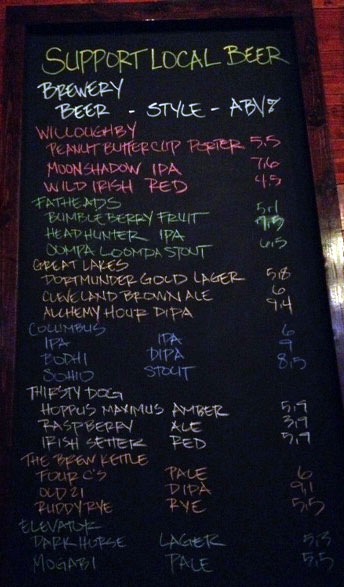 SUPPORT LOCAL BEER
BREWERY
BEER - STYLE - ABV%
WILLOUGHBY
PEANUT BUTTER CUP PORTER 5.5
MOONSHADOW IPA 7.6
WILD IRISH RED 4.5
FATHEADS
BUMBLEBERRY FRUIT 5.1
HEADHUNTER IPA 7.5
OOMPA LOOMPA STOUT 6.5
GREAT LAKES
DORTMUNDER GOLD LAGER 5.8
CLEVELAND BROWN ALE 6
ALCHEMY HOUR DIPA 9.4
COLUMBUS
IPA IPA 6
BODHI DIPA 9
SOHIO STOUT 8.5
THIRSTY DOG
HOPPUS MAXIMUS AMBER 5.9
RASPBERRY ALE 3.9
IRISH SETTER RED 5.9
THE BREW KETTLE
FOUR C'S PALE 6
OLD 21 DIPA 9.1
RUDDY RYE RYE 5.5
ELEVATOR
DARK HORSE LAGER 5.3
MOGABI PALE 5.5